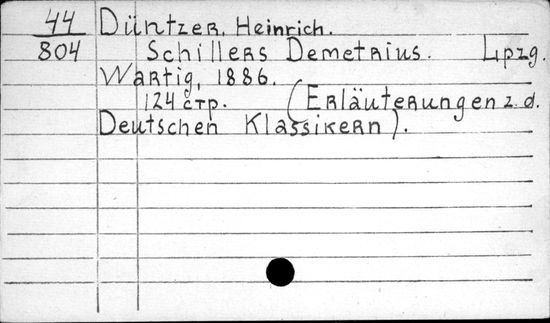 44 Düntzer, Heinrich.
804 Schillers Demetrius. Lpzg.
Wartig, 1886.
124 стр. (Erläuterungen z. d.
Deutschen Klassikern).